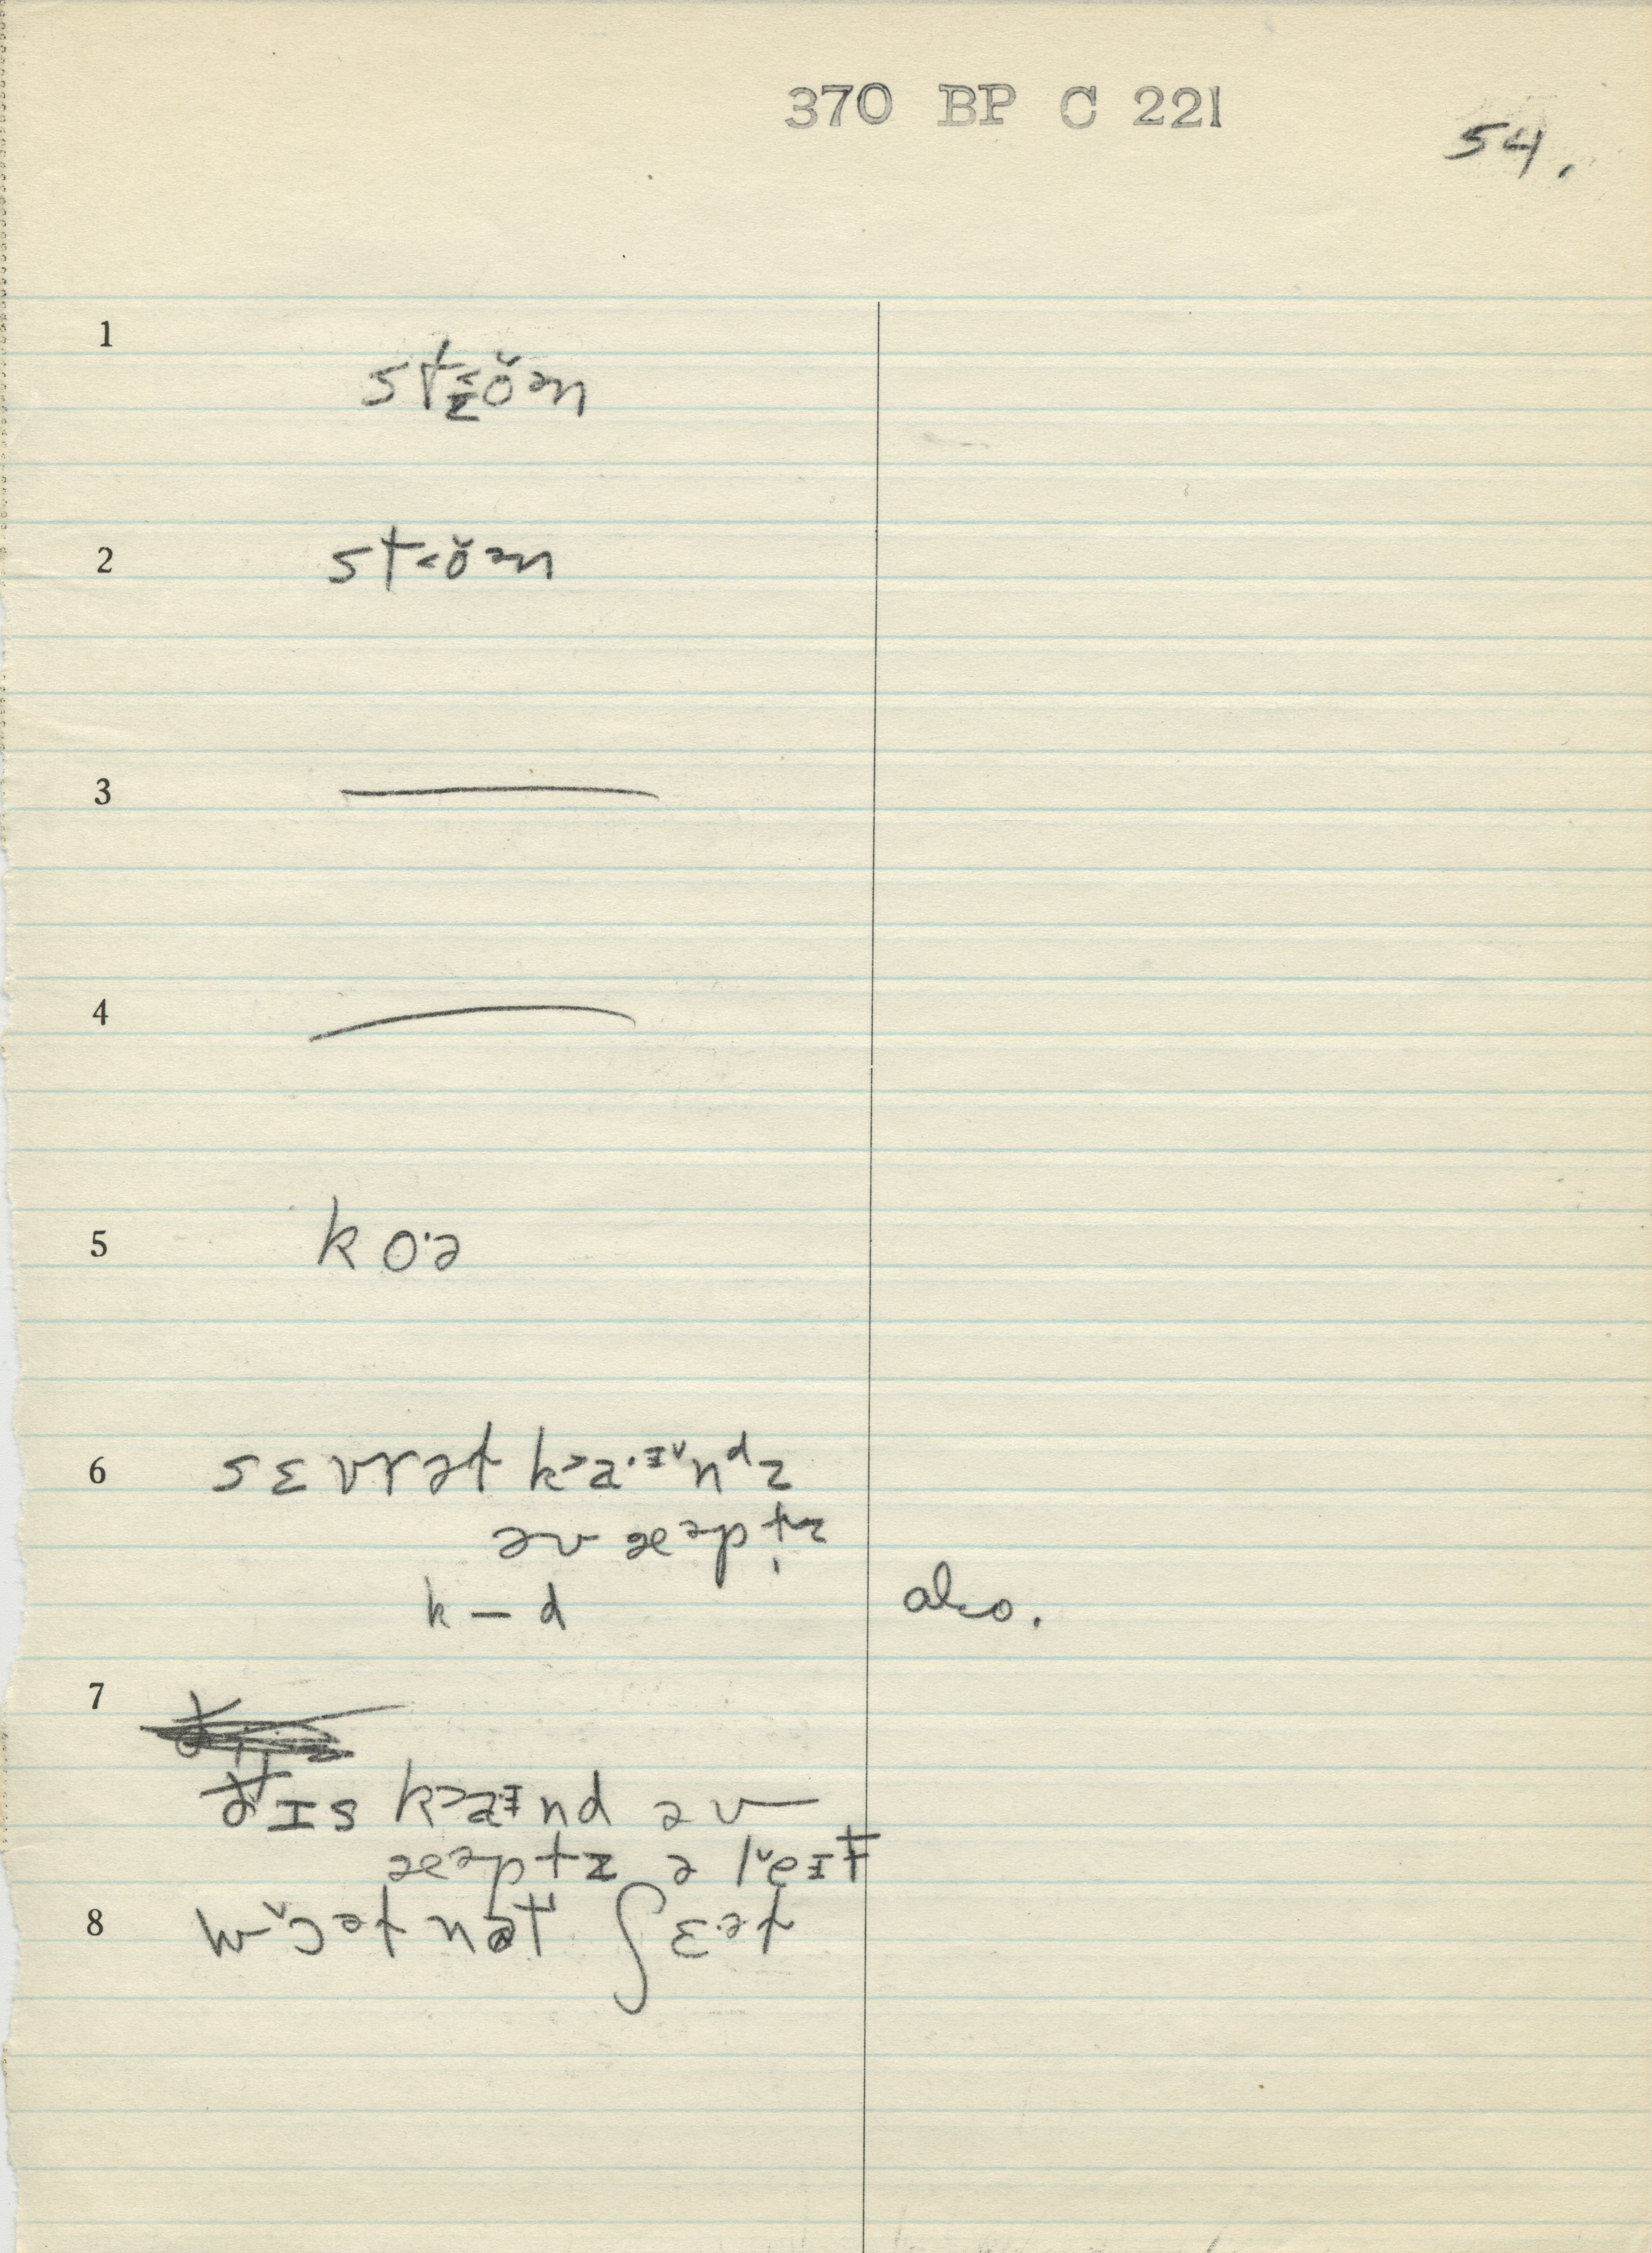 370 BP C 221
54.
1
st˂ŏən
2
st˂ŏən
3
4
5
ko·ə
6
sɛvrət k˃a·ɪ̆nᵈz
əv æᵊptz
k – d also.
7
ðɪs k˃aɪnd əv
æᵊptz ə lˇeɪt
8
wˇɔᵊt nɑt ʃɛ·ᵊt